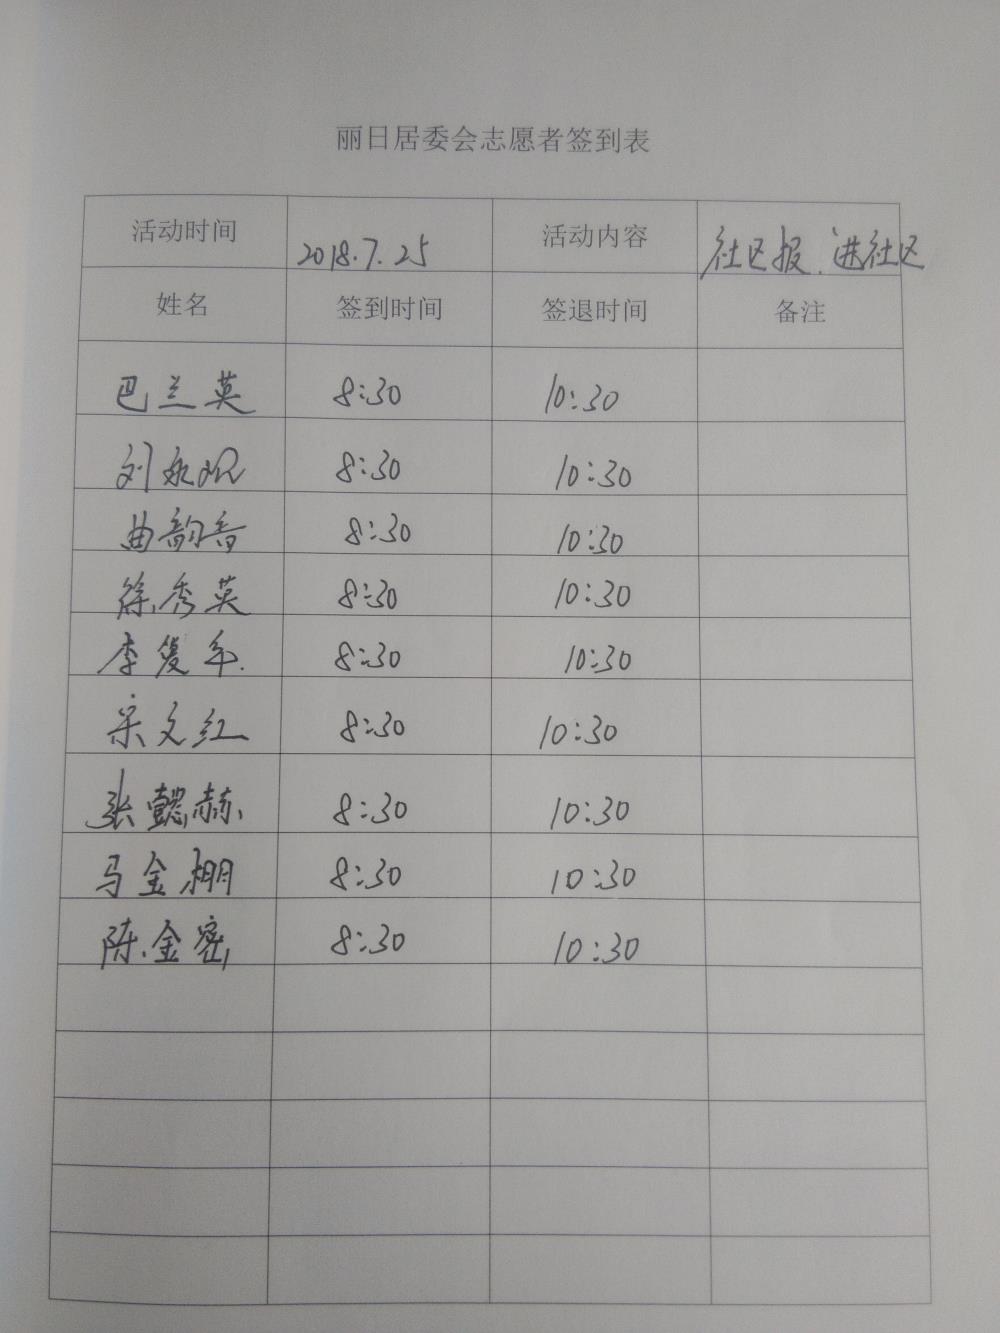 丽日居委会志愿者签到表
活动时间 2018.7.25 活动内容 社区报.进社区
姓名 签到时间 签退时间 备注
巴兰英 8:30 10:30
刘永观 8:30 10:30
曲韵香 8:30 10:30
徐秀英 8:30 10:30
李复年. 8:30 10:30
宋文红 8:30 10:30
张懿赫 8:30 10:30
马金棚 8:30 10:30
陈金密 8:30 10:30